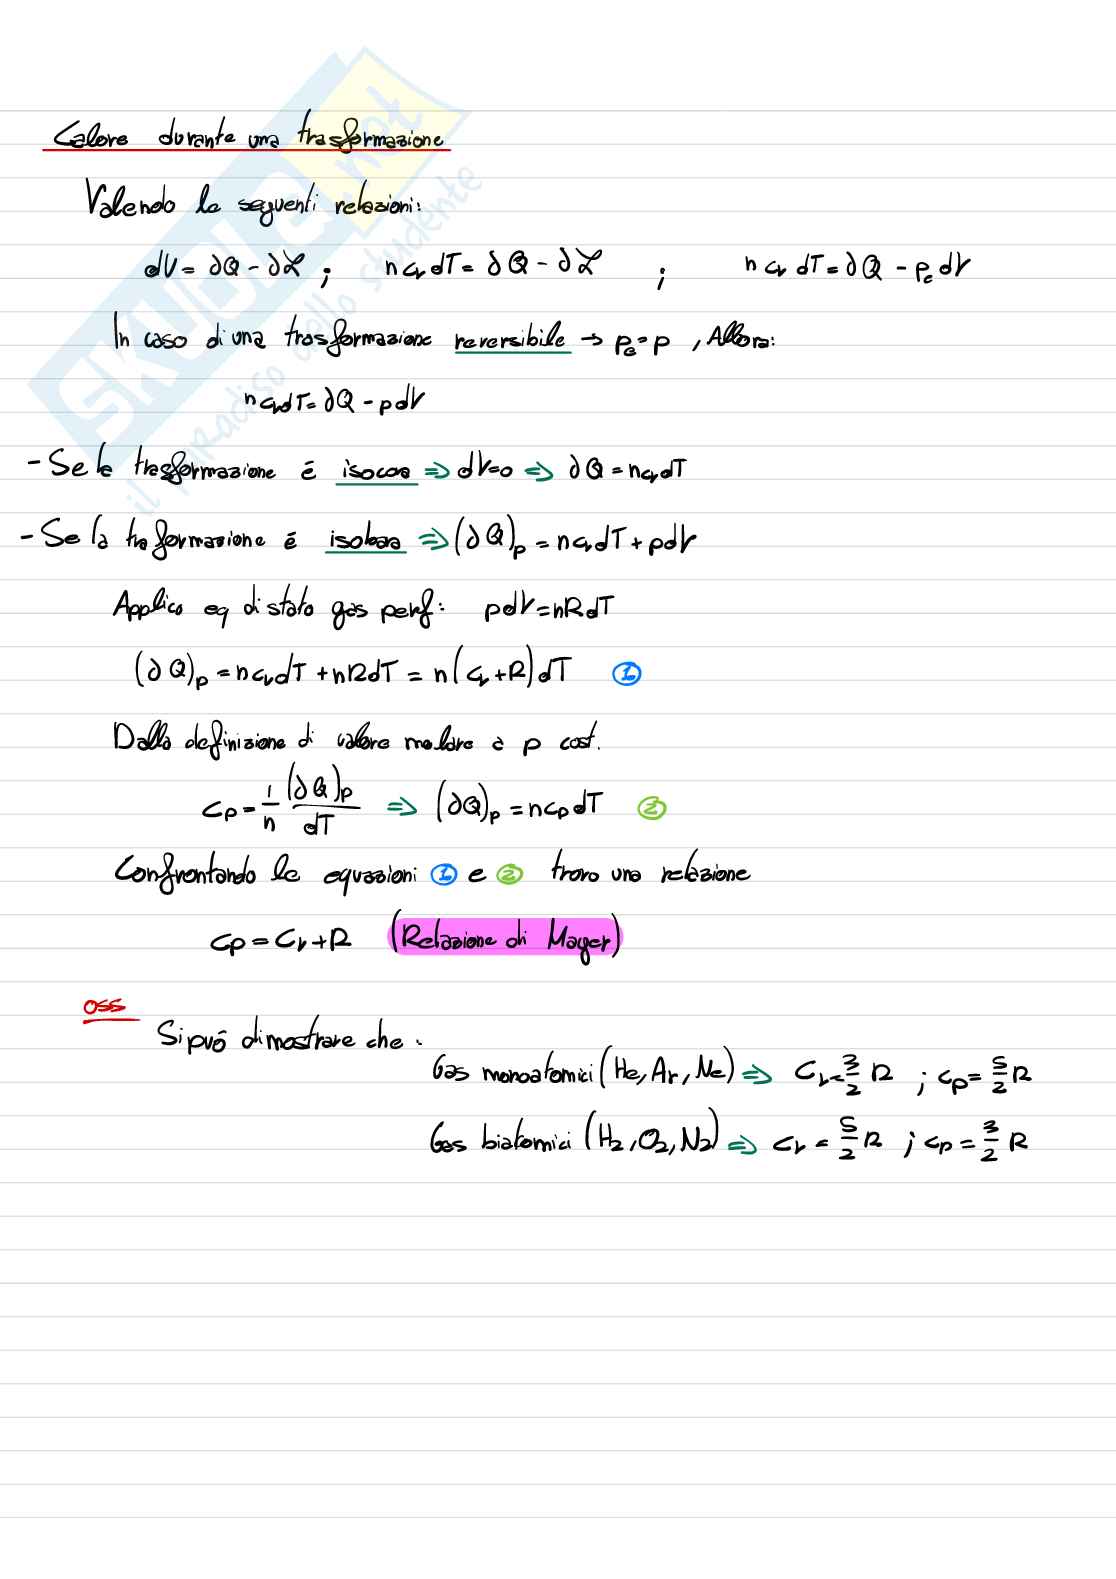 SKUOLA.net
il paradiso dello studente
Calore durante una trasformazione
Valendo le seguenti relazioni:
dU = ∂Q - ∂ℒ ; n cv dT = ∂Q - ∂ℒ ; n cv dT = ∂Q - pe dV
In caso di una trasformazione reversibile → pe = p , Allora:
n cv dT = ∂Q - p dV
- Se la trasformazione é isocora ⇒ dV=0 ⇒ ∂Q = n cv dT
- Se la traformazione é isobara ⇒ (∂Q)p = n cv dT + p dV
Applico eq di stato gas perf: p dV = nR dT
(∂Q)p = n cv dT + nR dT = n(cv + R) dT ①
Dalla definizione di calore molare a p cost.
cp = 1/n (∂Q)p/dT ⇒ (∂Q)p = n cp dT ②
Confrontando le equazioni ① e ② trovo una relazione
cp = cv + R (Relazione di Mayer)
oss
Si puó dimostrare che :
Gas monoatomici (He, Ar, Ne) ⇒ cv = 3/2 R ; cp = 5/2 R
Gas biatomici (H2, O2, N2) ⇒ cv = 5/2 R ; cp = 3/2 R